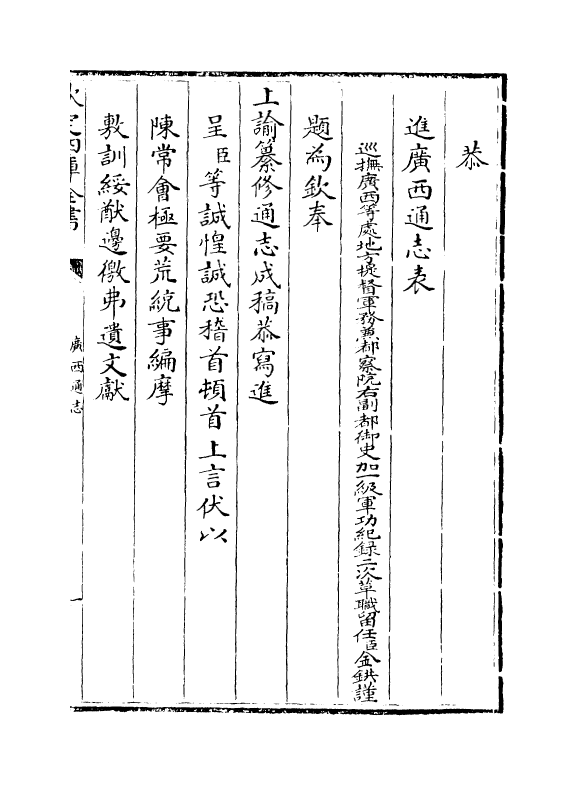 恭
進廣西通志表
巡撫廣西等處地方提督軍務兼都察院右副都御史加一級軍功紀録二次革職留任臣金鉷謹
題為欽奉
上諭纂修通志成稿恭寫進
呈臣等誠惶誠恐稽首頓首上言伏以
陳常會極要荒統事編摩
敷訓綏猷邊徼弗遺文獻
欽定四庫全書
廣西通志
一